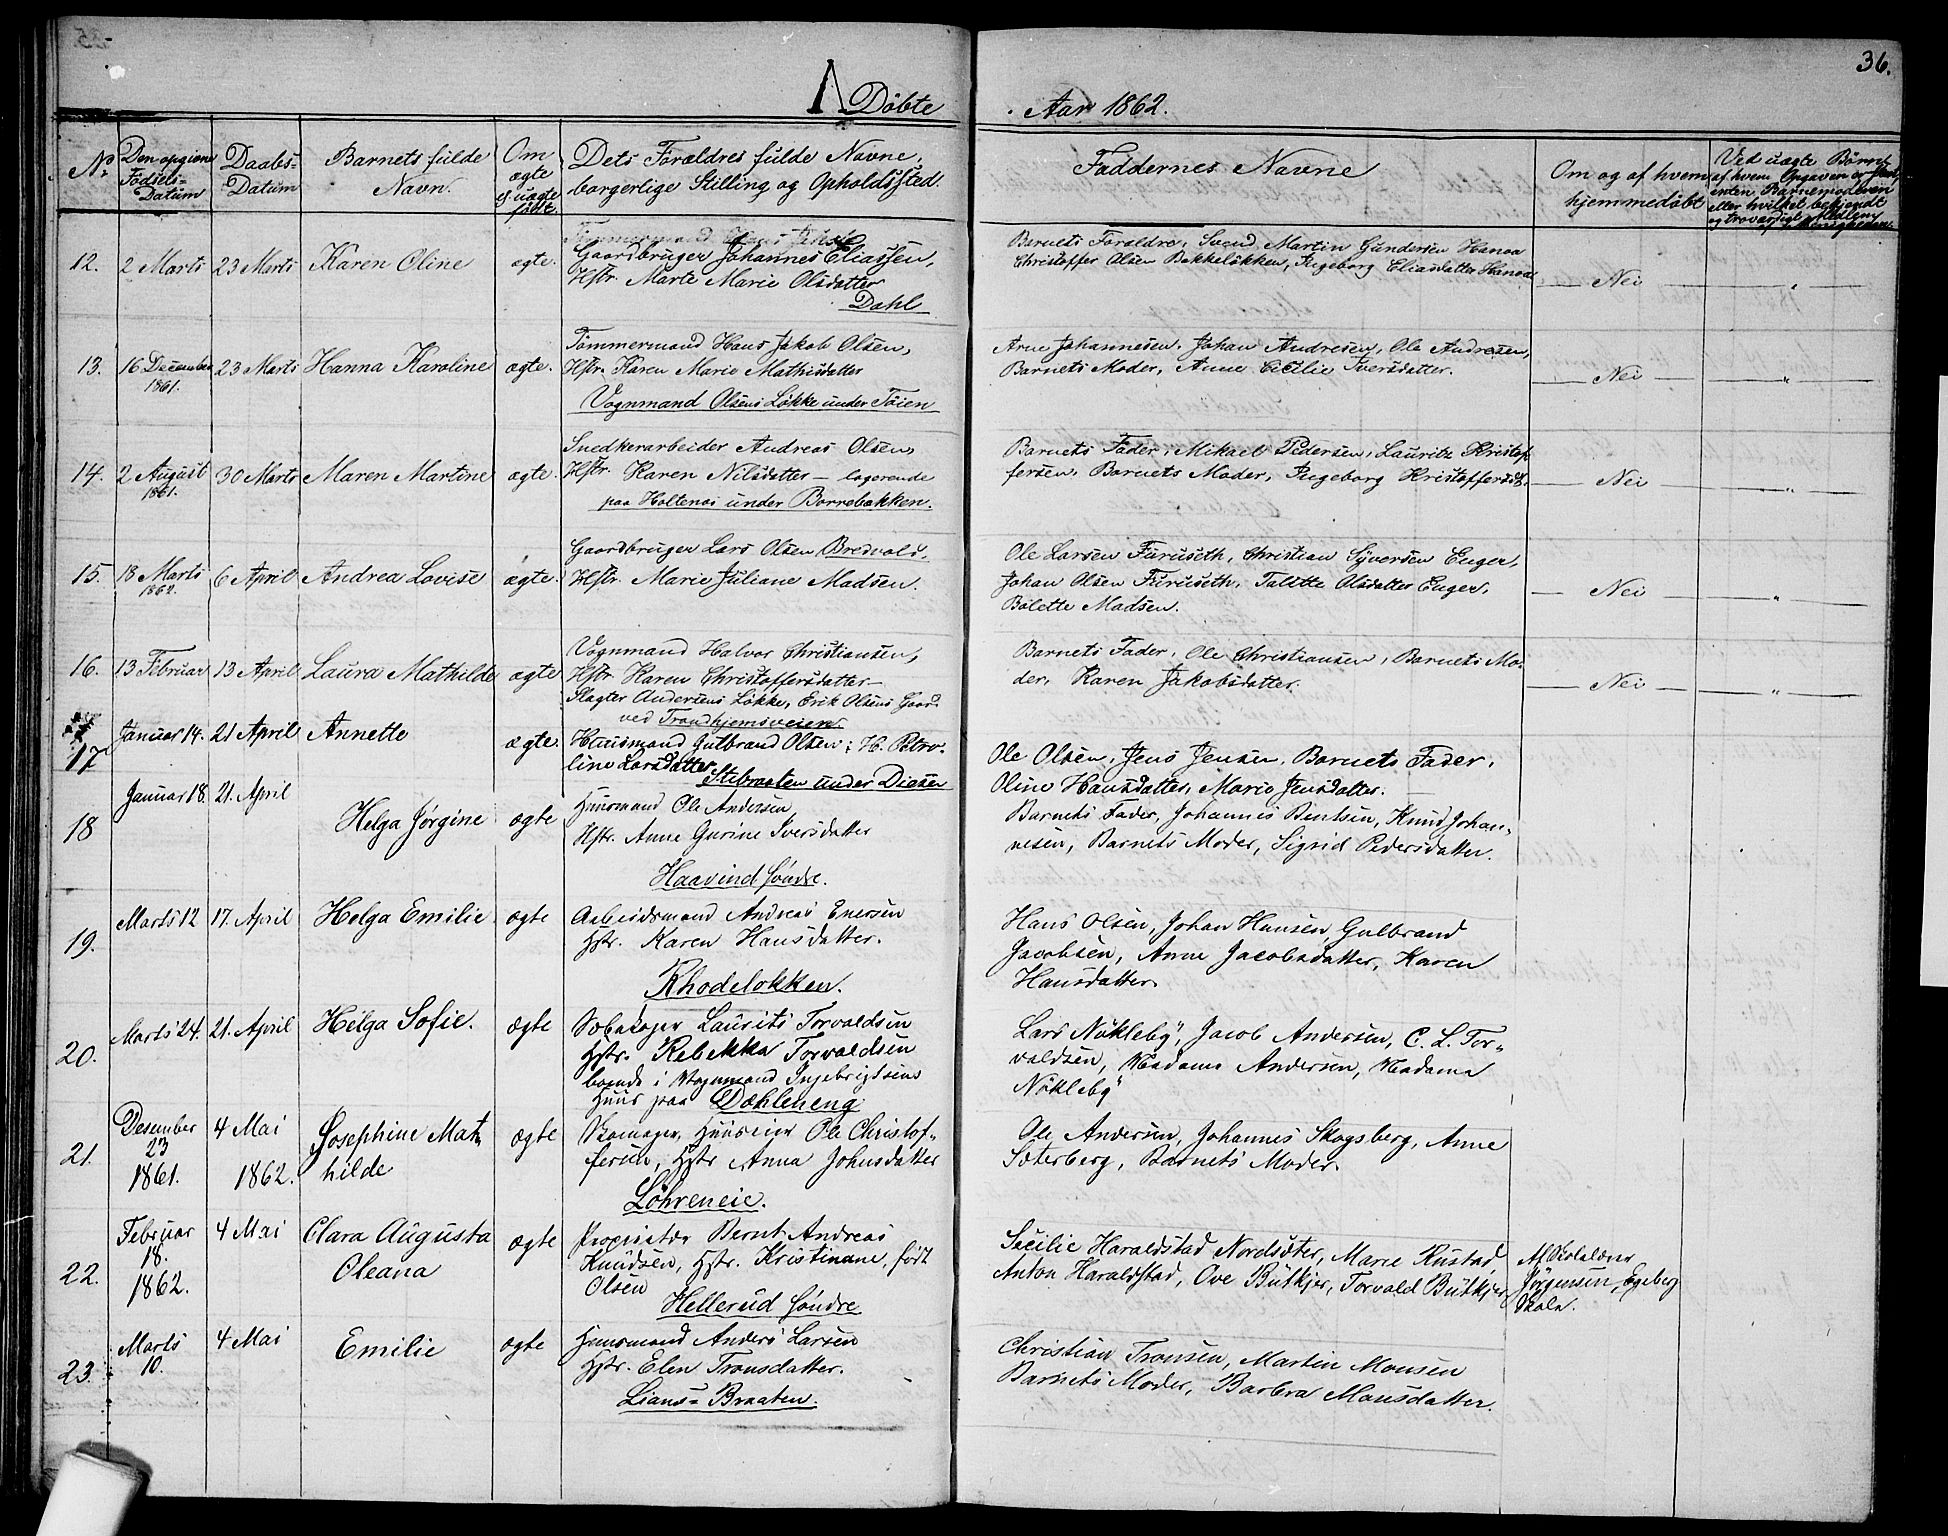 36.
Døbte
Aar 1862.
No
Den opgivne Fødsels-Datum
Daabs-Datum
Barnets fulde Navn.
Om ægte el. uægte født.
Dets Forældres fulde Navne, borgerlige Stilling og Opholdssted.
Faddernes Navne
Om og af hvem hjemmedøbt
Ved uægte Børn: af hvem Opgaven er skeet, enten Barnemoderen eller hvilket bekjendt og troværdigt Medlem af Menigheden.
12. 2 Marts 23 Marts Karen Oline ægte.
Gaardbruger Johannes Eliassen,
Hstr. Marte Marie Olsdatter
Dahl
Barnets Forældre, Svend Martin Gundersen Hanoa
Christoffer Olsen Bakkeløkken, Ingeborg Eliasdatter Hanoa
— Nei — — " —
13. 16 December 1861. 23 Marts Hanna Karoline ægte.
Tømmermand Hans Jakob Olsen,
Hstr. Karen Marie Mathisdatter
Vognmand Olsens Løkke under Tøien
Arne Johannesen, Johan Andresen, Ole Andresen,
Barnets Moder, Anne Cecilie Iversdatter.
— Nei — — " —
14. 2 August 1861. 30 Marts Maren Martine ægte.
Snedkerarbeider Andreas Olsen,
Hstr. Karen Nilsdatter — logerende
paa Holtenas under Borrebakken.
Barnets Fader, Mikael Pedersen, Lauritz Kristof-
fersen, Barnets Moder, Ingeborg Kristoffersdt.
— Nei — — " —
15. 18 Marts 1862. 6 April Andrea Lovise ægte.
Gaardbruger Lars Olsen Bredvold.
Hstr. Marie Juliane Madsen.
Ole Larsen Furuseth, Christian Syversen Enger,
Johan Olsen Furuseth, Talette Olsdatter Enger,
Bolette Madsen.
— Nei — — " —
16. 13 Februar 13 April Laura Mathilde ægte
Vognmand Halvor Christiansen,
Hstr. Karen Christoffersdatter —
Slagter Andersens Løkke, Erik Olsens Gaard
ved Trondhjemsveien.
Barnets Fader, Ole Christiansen, Barnets Mo-
der, Karen Jakobsdatter.
— Nei — — " —
17 Januar 14. 21 April Annette ægte.
Huusmand Gulbrand Olsen; H. Petro-
line Larsdatter
Stubraaten under Diesen
Ole Olsen, Jens Jensen, Barnets Fader,
Oline Hansdatter, Marie Jensdatter.
18 Januar 18. 21. April Helga Jørgine ægte
Huusmand Ole Andersen
Hstr. Anne Gurine Iversdatter
Haavind søndre.
Barnets Fader, Johannes Bentsen, Knud Johan-
nesen, Barnets Moder, Sigrid Pedersdatter.
19. Marts 12 17. April Helga Emilie ægte
Arbeidsmand Andreas Enersen
Hstr. Karen Hansdatter.
Rhodeløkken.
Hans Olsen, Johan Hansen, Gulbrand
Jacobsen, Anne Jacobsdatter, Karen
Hansdatter.
20. Marts 24. 21. April Helga Sofie. ægte
Laurits Torvaldsen
Hstr. Rebekka Torvaldsen
boende i Vognmand Ingebrigtsens
Huus paa Dæhleneng
Lars Nökleby, Jacob Andersen, C. L. Tor-
valdsen, Madame Andersen, Madame
Nökleby
21. Desember 23 1861. 4 Mai 1862. Josephine Mat-
hilde ægte
Skomager, Huuseier Ole Christof-
fersen, Hstr Anna Johnsdatter
Löhreneie.
Ole Andersen, Johannes Skogsberg, Anne
Sæterberg, Barnets Moder.
22. Februar 18. 1862. 4 Mai Clara Augusta
Oleana ægte
Proprietær Bernt Andreas
Knudsen, Hstr. Kristinane, født
Olsen
Hellerud søndre
Sæcilie Haraldstad Nordsæter, Marie Rustad,
Anton Haraldstad, Ove Bütkjer, Torvald Bütkjer
Af Skolelærer
Jörgensen, Egeberg
Skole.
23. Marts 10. 4 Mai Emilie ægte
Huusmand Anders Larsen
Hstr. Elen Tronsdatter.
Lians-Braaten.
Christian Tronsen, Martin Monsen
Barnets Moder, Barbra Mansdatter.